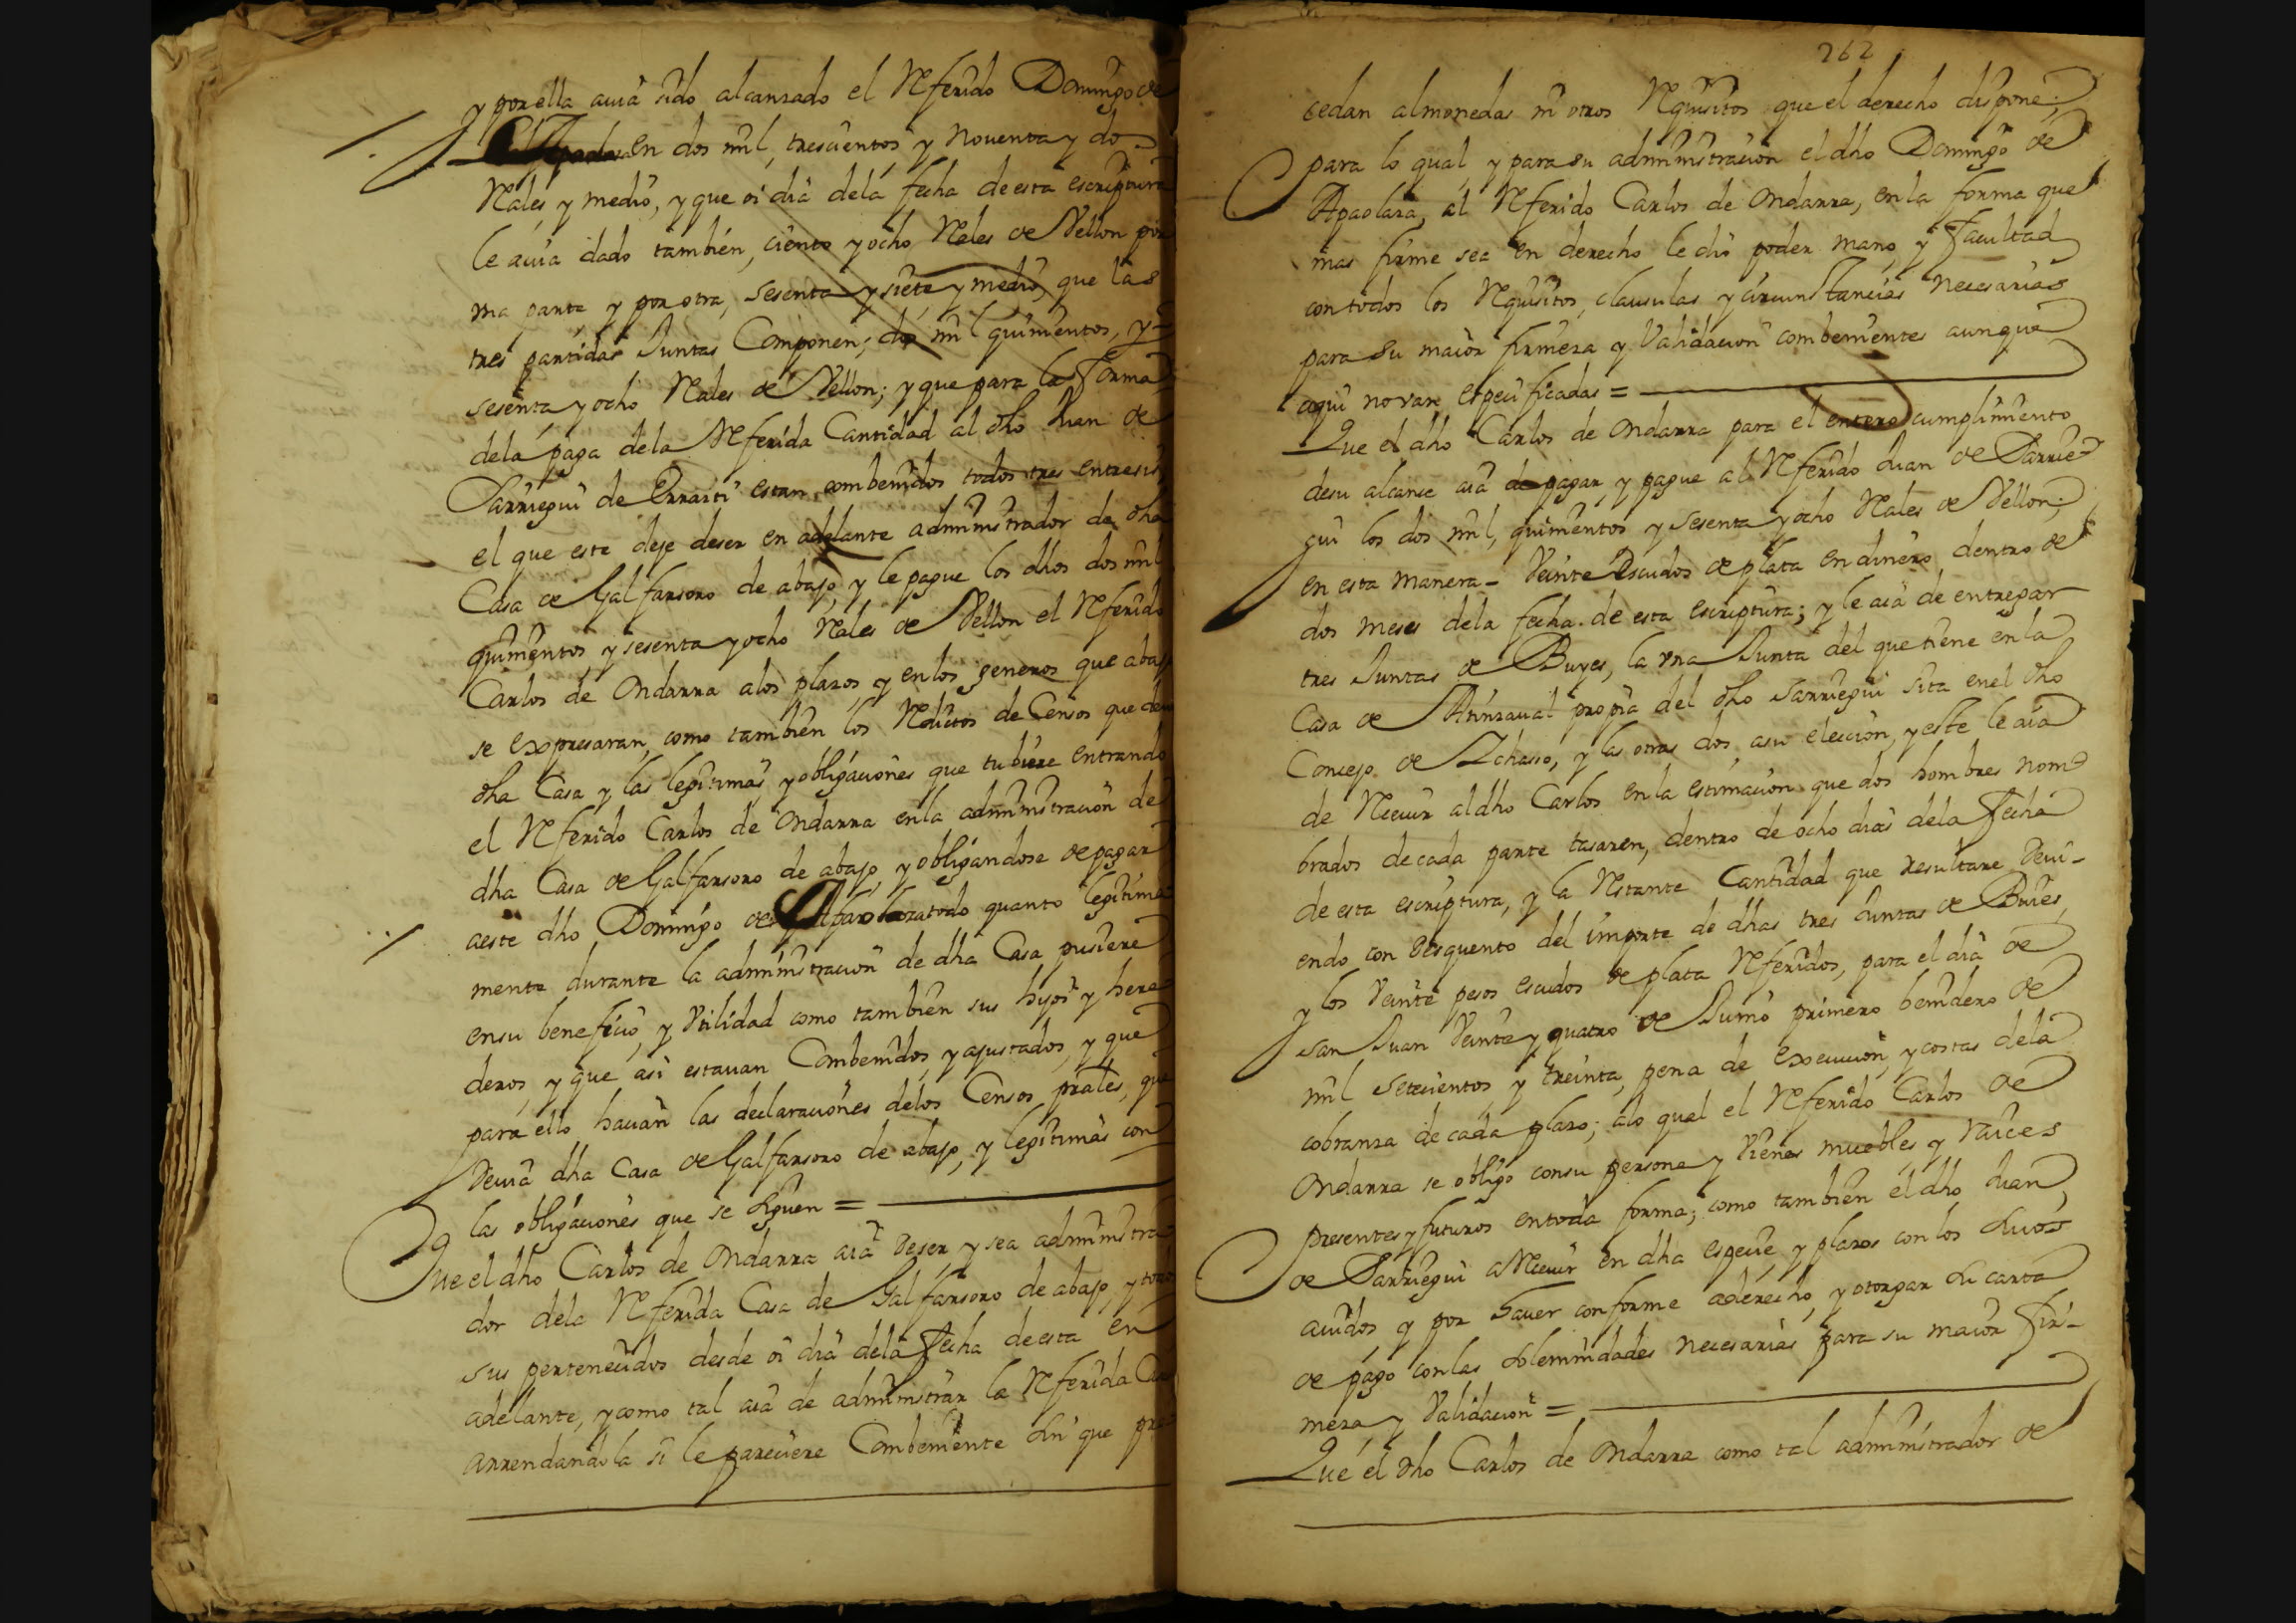 y por ella auia sido alcanzado el Referido Domingo de
Apaolaza en dos mil, trescientos y Nouenta y dos
Reales y medio, y que oi dia dela fecha de esta escriptura
le auia dado tambien, ciento y ocho Reales de Vellon por
vna parte y por otra, sesenta y siete y medio, que las
tres partidas Juntas Componen; dos mil quinientos, y
sesenta y ocho Reales de Vellon; y que para la Forma
dela paga dela Referida Cantidad al dho Juan de
Sarriegui de Errazti estan combenidos todos tres entresi,
el que este deje deser en adelante administrador de dha
Casa de Galfarsoro de abajo, y le pague los dhos dos mil
quinientos y sesenta y ocho Reales de Vellon el Referido
Carlos de Ondarra alos plazos, y enlos generos que abajo
se expresaran, como tambien los Reditos de Censos que deue
dha Casa y las legitimas y obligaciones que tubiere entrando
el Referido Carlos de Ondarra enla administracion de
dha Casa de Galfarsoro de abajo, y obligandose de pagar
aeste dho Domingo de Apaolaza todo quanto legitima
mente durante la administracion de dha Casa pusiere
ensu beneficio, y Vtilidad como tambien sus hijos y here
deros, y que asi estauan Combenidos, y ajustados, y que
para ello hauian las declaraciones delos Censos prales, que
Deuia dha Casa de Galfarsoro de abajo, y legitimas con
las obligaciones que se siguen =
Que el dho Carlos de Ondarra aia Deser, y sea administra
dor dela Referida Casa de Galfarsoro de abajo, y todos
sus pertenecidos desde oi dia dela Fecha de esta en
adelante, y como tal aia de administrar la Referida Casa
arrendandola si le pareciere Combeniente sin que pre
262
cedan almonedas ni otros Requisitos que el derecho dispone;
para lo qual, y para su administracion el dho Domingo de
Apaolaza, al Referido Carlos de Ondarra, en la forma que
mas firme sea en derecho le dio poder mano, y Facultad
con todos los Requisitos, clausulas y circunstancias Necesarias
para su maior firmeza y Validacion combenientes aunque
aqui no van especificadas =
Que el dho Carlos de Ondarra para el entero cumplimiento
desu alcanse aia de pagar, y pague al Referido Juan de Sarrie
gui los dos mil, quinientos y sesenta y ocho Reales de Vellon;
en esta manera - Veinte Escudos de plata en dinero dentro de
dos meses dela fecha de esta escriptura; y le aia de entregar
tres Juntas de Buyes, la vna Junta del que tiene en la
Casa de Atinzaual propia del dho Sarriegui sita en el dho
Concejo de Ichasso, y las otras dos, asu eleccion, y este le aia
de Receuir al dho Carlos en la estimacion que dos hombres nom
brados de cada parte tasaren, dentro de ocho dias dela Fecha
de esta escriptura, y la Restante Cantidad que resultare Deui-
endo con Desquento del importe de dhas tres Juntas de Buies,
y los Veinte pesos escudos de plata Referidos, para el dia de
San Juan Veinte y quatro de Junio primero benidero de
mil Setecientos y treinta, pena de execucion, y costas dela
cobranza de cada plazo; alo qual el Referido Carlos de
Ondarra se obligo consu persona y Vienes muebles y raices
presentes y futuros entoda forma; como tambien el dho Juan
de Sarriegui a Receuir en dha especie y plazos con los suios
auidos, y por hauer conforme aderecho, y otorgar su carta
de pago con las solemnidades necesarias para su maior Fir-
meza y Validacion =
Que el dho Carlos de Ondarra como tal administrador de